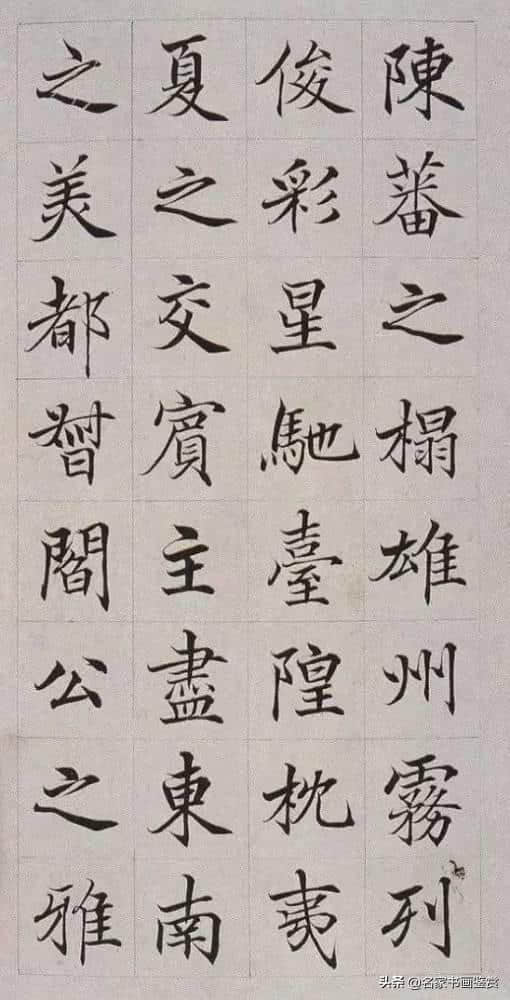 陳蕃之榻雄州霧列
俊彩星馳臺隍枕夷
夏之交賓主盡東南
之美都督閻公之雅
头条 @名家书画鉴赏